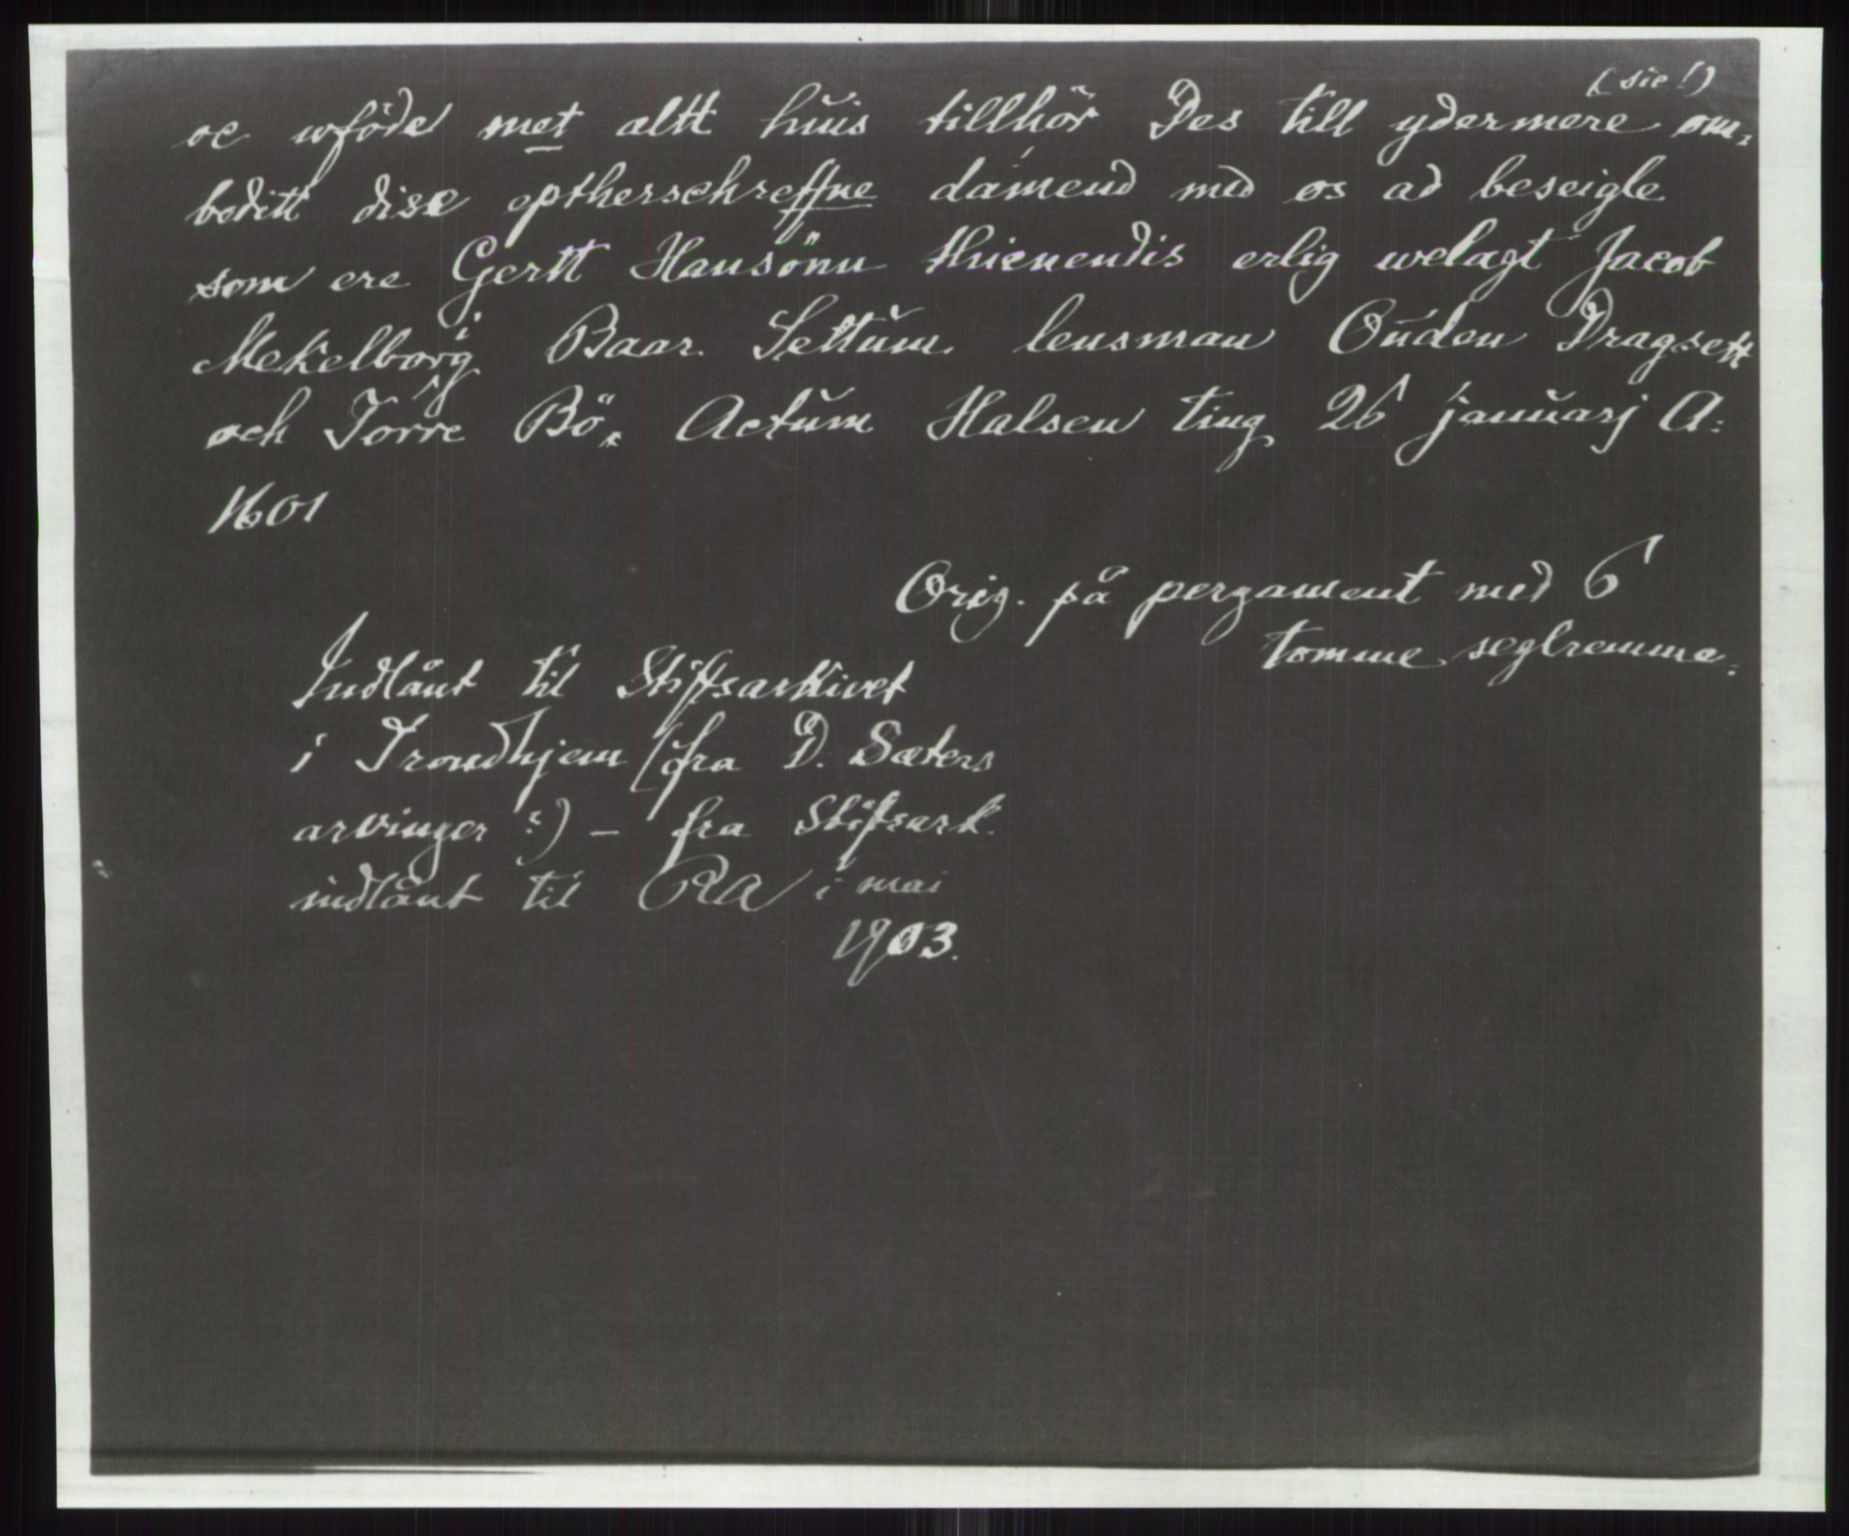 (sic!)
oc wföde met altt huis tillhör Des till ydermere om-
beditt dise eptherschreffne damend med os ad beseigle
som ere Gertt Hansönn thienendis erlig welagt Jacob
Mekelborig Baar Settum lensman Ouden Dragsett
och Torre Bö. Actum Halsen ting 26 januarj A:
1601
Orig. på pergament med 6
tomme seglremme.
Indlånt til Stiftsarkivet
i Trondhjem (fra D. Sæters
arvinger?) – fra Stiftsark.
indlånt til RA i mai
1903.